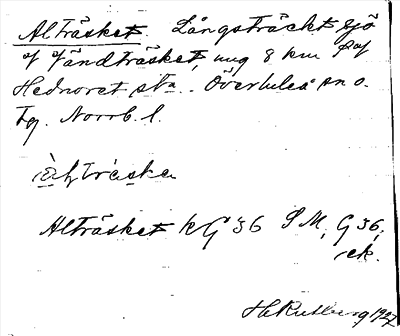 Alträsket. Långsträckt sjö
af Tändträsket, ung 8 km S af
Hednoret sta. Överluleå sn o.
tg. Norrb. l.
Alträsket kG 36 SM, G 36,
ek.
H. Rutberg 1927